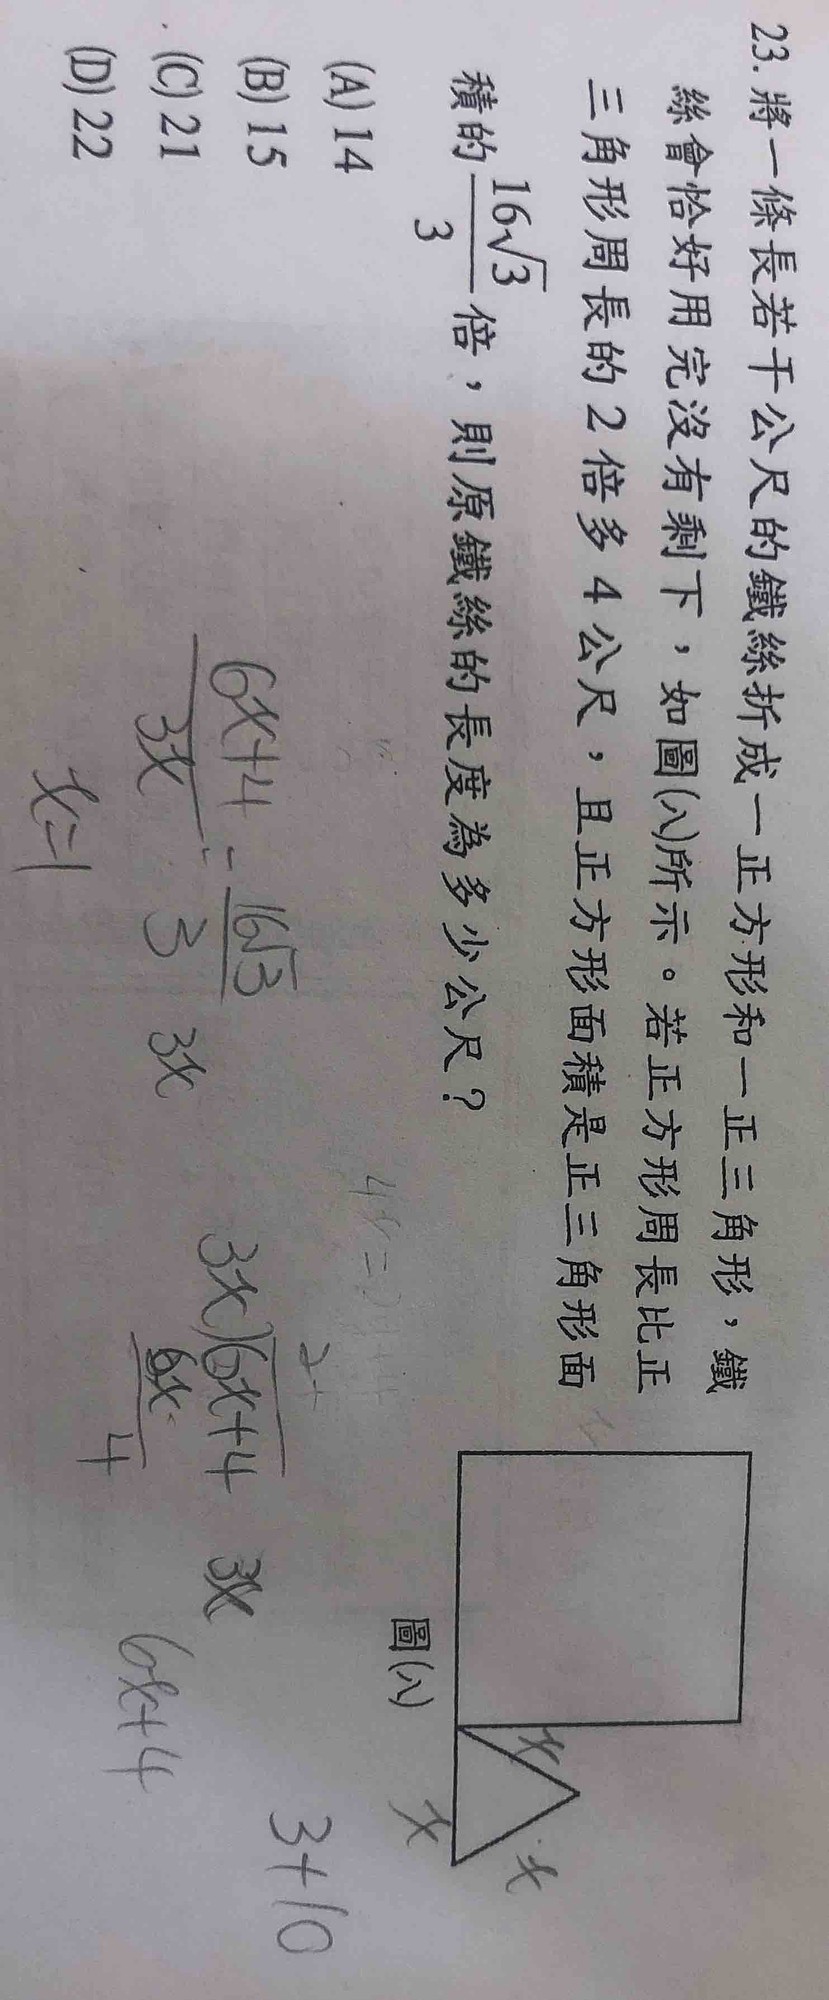 23. 將一條長若干公尺的鐵絲折成一正方形和一正三角形，鐵
絲會恰好用完沒有剩下，如圖(八)所示。若正方形周長比正
三角形周長的 2 倍多 4 公尺，且正方形面積是正三角形面
積的 16√3/3 倍，則原鐵絲的長度為多少公尺？
(A) 14
(B) 15
(C) 21
(D) 22
圖(八)
x
x
x
6x+4/3x = 16√3/3
x=1
3x
3x)6x+4
6x
4
3x
6x+4
3+10